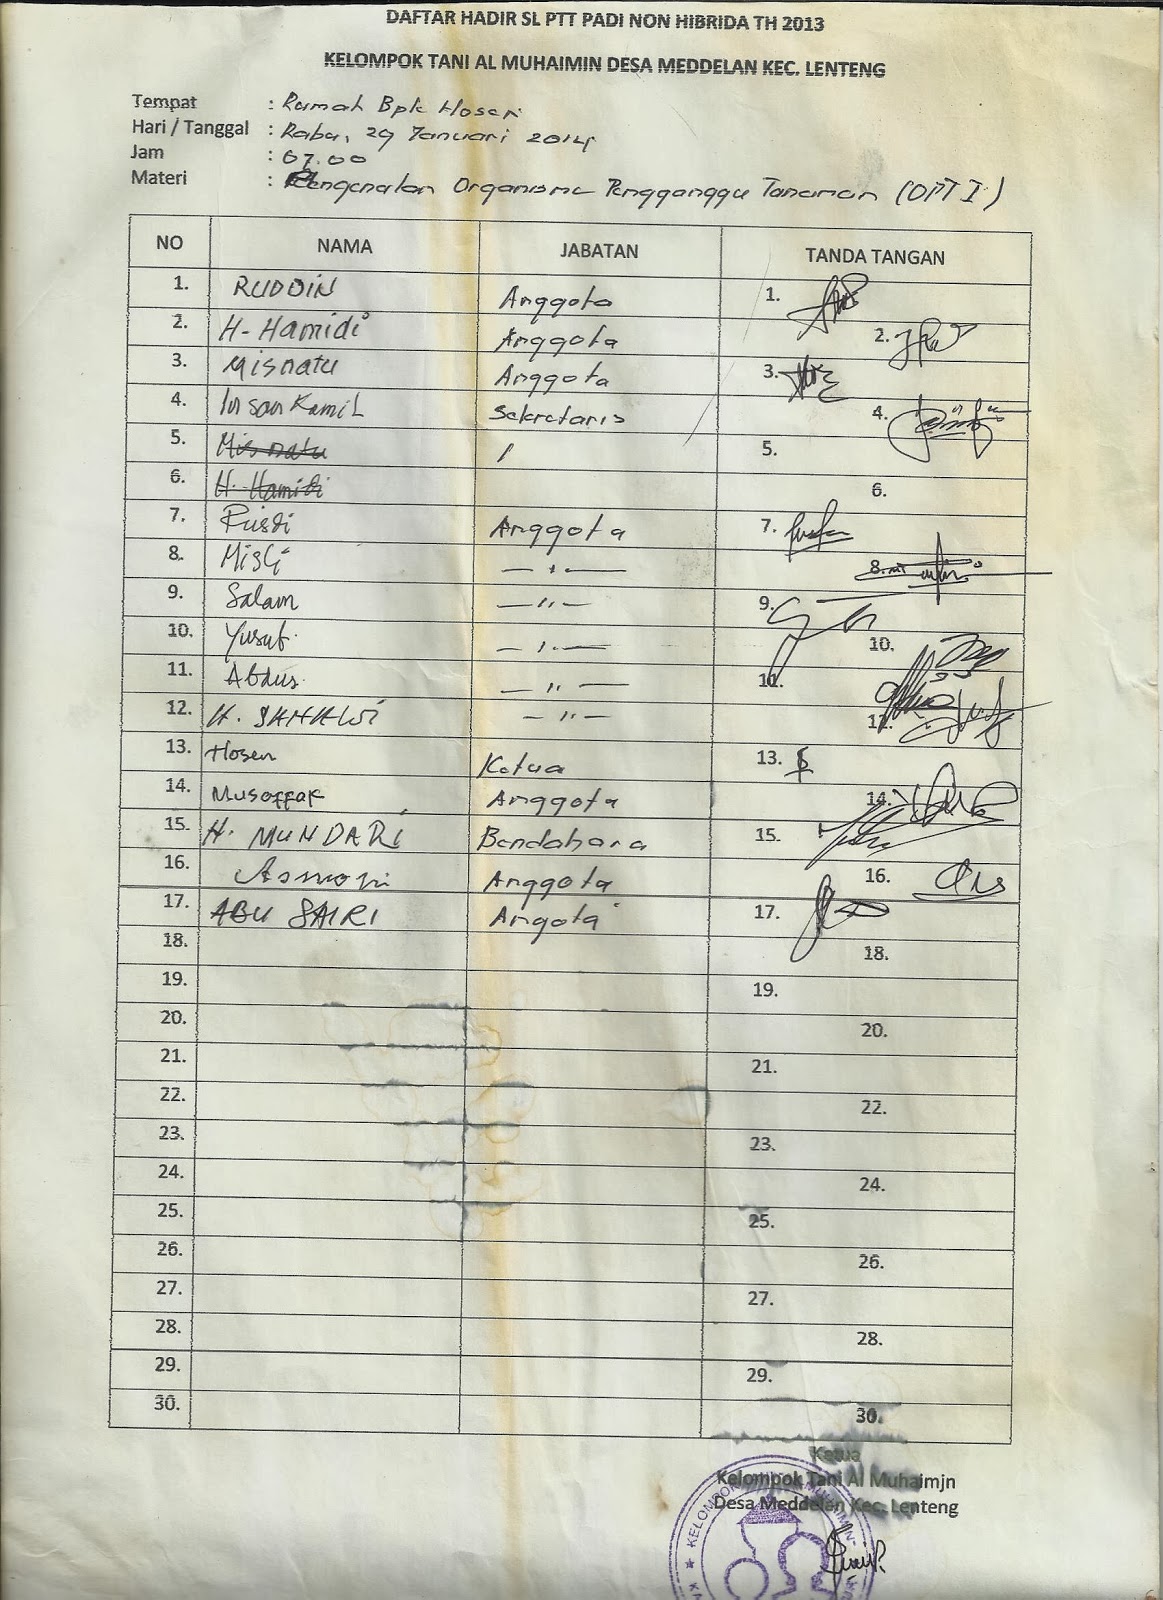 DAFTAR HADIR SL PTT PADI NON HIBRIDA TH 2013
KELOMPOK TANI AL MUHAIMIN DESA MEDDELAN KEC. LENTENG
Tempat : Rumah Bpk Hosen
Hari / Tanggal : Rabu, 29 Januari 2014
Jam : 07.00
Materi : Pengenalan Organisme Pengganggu Tanaman (OPT I)
NO NAMA JABATAN TANDA TANGAN
1. RUDDIN Anggota 1.
2. H. Hamidi Anggota 2.
3. Misnatu Anggota 3.
4. Insan Kamil Sekretaris 4.
5. Misnatu 5.
6. H. Hamidi 6.
7. Rusdi Anggota 7.
8. Misli — " — 8.
9. Salam — " — 9.
10. Yusuf. — " — 10.
11. Abdus — " — 11.
12. H. SAHAWI — " — 12.
13. Hosen Ketua 13.
14. Musaffak Anggota 14.
15. H. MUNDARI Bendahara 15.
16. Asmoni Anggota 16.
17. ABU SAIRI Angota 17.
18. 18.
19. 19.
20. 20.
21. 21.
22. 22.
23. 23.
24. 24.
25. 25.
26. 26.
27. 27.
28. 28.
29. 29.
30. 30.
Ketua
Kelompok Tani Al Muhaimjn
Desa Meddelan Kec. Lenteng